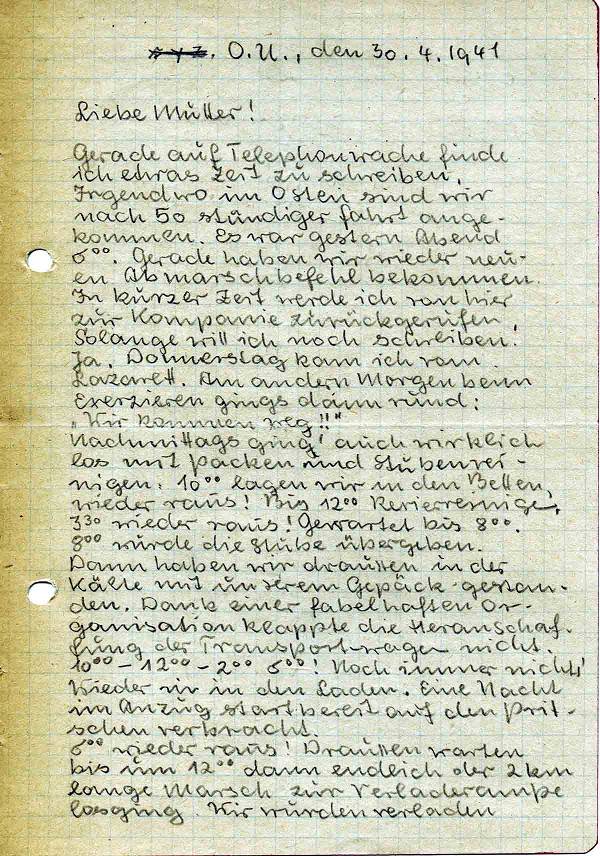 O.U., den 30.4.1941
Liebe Mutter!
Gerade auf Telephonwache finde
ich etwas Zeit zu schreiben.
Irgendwo im Osten sind wir
nach 50 stündiger Fahrt ange-
kommen. Es war gestern Abend
6⁰⁰. Gerade haben wir wieder neu-
en Abmarschbefehl bekommen.
In kurzer Zeit werde ich von hier
zur Kompanie zurückgerufen,
Solange will ich noch schreiben.
Ja. Donnerstag kam ich vom
Lazarett. Am andern Morgen beim
Exerzieren gings dann rund:
„Wir kommen weg!!"
Nachmittags ging's auch wirklich
los mit packen und Stubenrei-
nigen. 10⁰⁰ lagen wir in den Betten,
wieder raus! Bis 12⁰⁰ Revierreinige.
3³⁰ wieder raus! Gewartet bis 8⁰⁰.
8⁰⁰ wurde die Stube übergeben.
Dann haben wir draußen in der
Kälte mit unserem Gepäck gestan-
den. Dank einer fabelhaften Or-
ganisation klappte die Heranschaf-
fung der Transportwagen nicht.
10⁰⁰ – 12⁰⁰ – 2⁰⁰ 6⁰⁰! Noch immer nichts!
Wieder in den Laden. Eine Nacht
im Anzug startbereit auf den Prit-
schen verbracht.
6⁰⁰ wieder raus! Draußen warten
bis um 12⁰⁰ dann endlich der 2 km
lange Marsch zur Verladerampe
losging. Wir wurden verladen